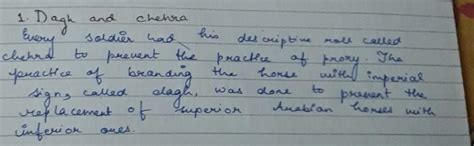 1. Dagh and chehra
Every soldier had his descriptive roll called
chehra to prevent the practice of proxy. The
practice of branding the horse with imperial
sign, called dagh, was done to prevent the
replacement of superior Arabian horses with
inferior ones.